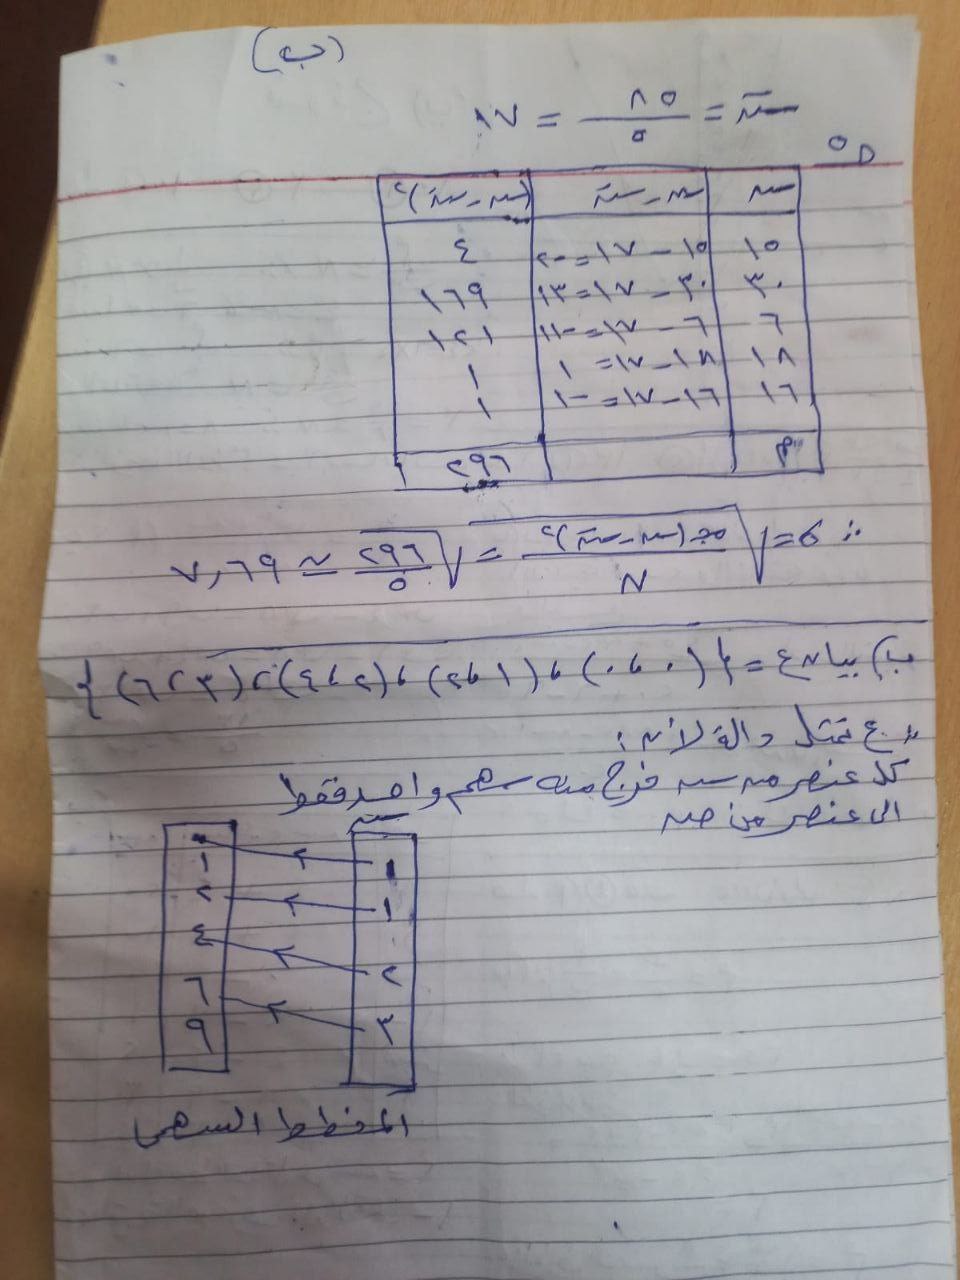 (ب)
سَ = ٨٥ / ٥ = ١٧
٥
س | س - سَ | (س - سَ)٢
١٥ | ١٥ - ١٧ = -٢ | ٤
٣٠ | ٣٠ - ١٧ = ١٣ | ١٦٩
٦ | ٦ - ١٧ = -١١ | ١٢١
١٨ | ١٨ - ١٧ = ١ | ١
١٦ | ١٦ - ١٧ = -١ | ١
٢٩٦
∴ σ = √(مجـ (س - سَ)٢ / ن) = √(٢٩٦ / ٥) ≃ ٧,٦٩
ب) بيان ع = { (٠، ٠)، (١، ٢)، (٢، ٤)، (٣، ٦) }
ع تمثل دالة لأن:
كل عنصر من س خرج منه سهم واحد فقط
الى عنصر من ص
س
٠ ١
١ ٢
٢ ٤
٣ ٦
٩
المخطط السهمى